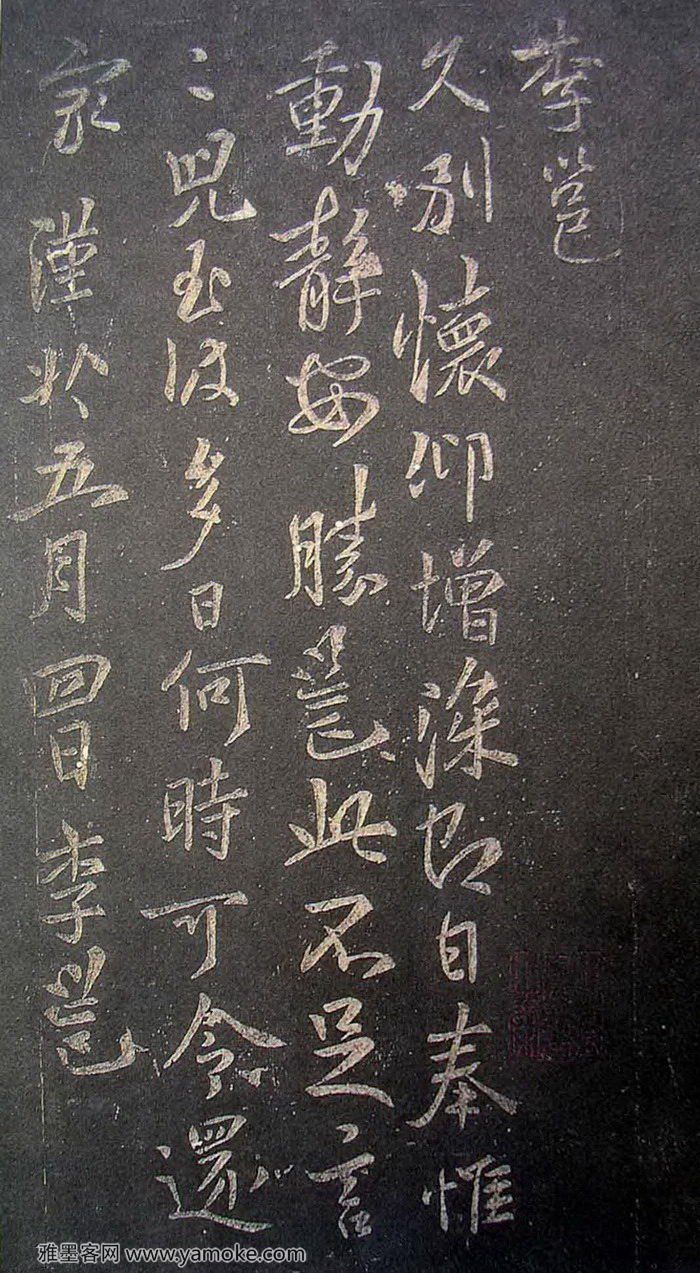 李邕
久別懷仰增深即日奉惟
動靜安勝邕此不足言
二兒至彼多日何時可令還
家謹於五月四日李邕
雅墨客网 www.yamoke.com